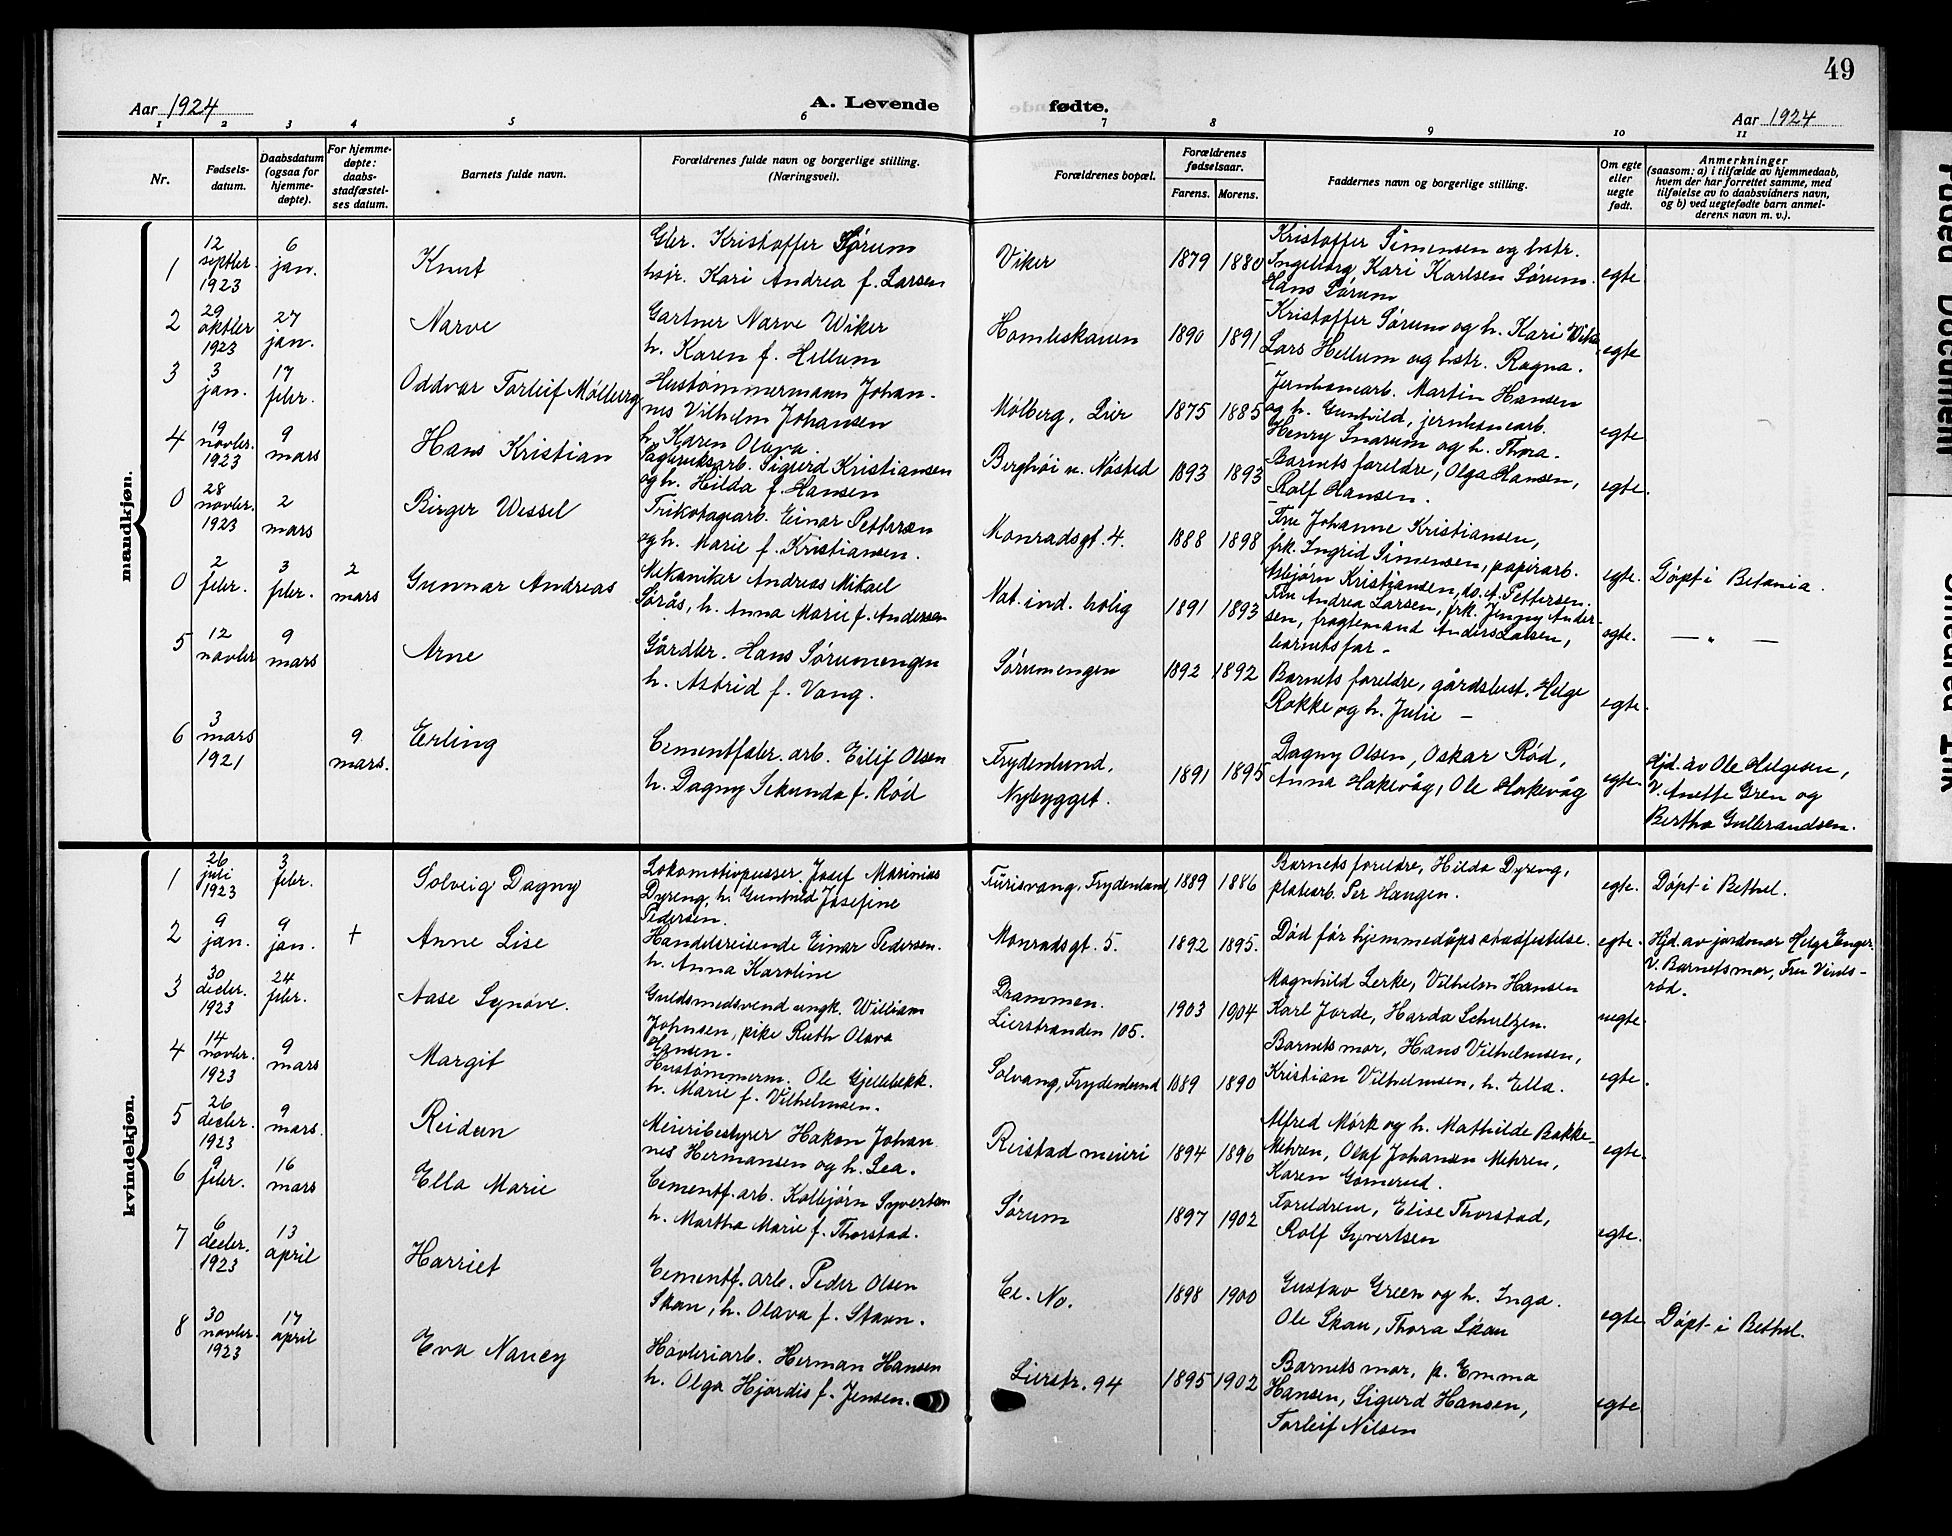 49
Aar 1924
A. Levende fødte.
Aar 1924
1 2 3 4 5 6 7 8 9 10 11
Nr.
Fødsels-
datum.
Daabsdatum
(ogsaa for
hjemme-
døpte).
For hjemme-
døpte:
daabs-
stadfæstel-
ses datum.
Barnets fulde navn.
Forældrenes fulde navn og borgerlige stilling.
(Næringsvei).
Forældrenes bopæl.
Forældrenes
fødselsaar.
Farens. Morens.
Faddernes navn og borgerlige stilling.
Om egte
eller
uegte
født.
Anmerkninger
(saasom: a) i tilfælde av hjemmedaab,
hvem der har forrettet samme, med
tilføielse av to daabsvidners navn,
og b) ved uegtefødte barn anmel-
derens navn m. v.).
mandkjøn.
1
12
septbr.
1923
6
jan.
Knut
Gbr. Kristoffer Sørum
hstr. Kari Andrea f. Larsen
Viker
1879 1880
Kristoffer Simensen og hstr.
Ingeborg, Kari Karlsen Sørum.
Hans Sørum
egte
2
29
oktbr
1923
27
jan.
Narve
Gartner Narve Wiker
h. Karen f. Hellum
Homleskauen
1890 1891
Kristoffer Sørum og h. Kari Wiker
Lars Hellum og hstr. Ragna.
egte
3
3
jan.
17
febr.
Oddvar Torleif Mølberg
Hustømmermann Johan-
nes Vilhelm Johansen
h. Karen Olava.
Mølberg, Lier
1875 1885
Jernbanearb. Martin Hansen
og h. Gunhild, jernbanearb.
Henry Snarum og h. Thora.
egte
4
19
novbr.
1923
9
mars
Hans Kristian
Sagbruksarb. Sigurd Kristiansen
og h. Hilda f. Hansen
Berghöi n. Nösted
1893 1893
Barnets foreldre, Olga Hansen,
Rolf Hansen.
egte.
0
28
novbr.
1923
2
mars
Birger Wessel
Trikotagearb. Einar Pettersen
og h. Marie f. Kristiansen.
Monradsgt. 4.
1888 1898
Fru Johanne Kristiansen,
frk. Ingrid Simensen, papirarb.
Asbjørn Kristiansen, do. A. Pettersen.
egte.
Döpt i Betania.
0
2
febr.
3
febr.
2
mars
Gunnar Andreas
Mekaniker Andreas Mikael
Sørås, h. Anna Marie f. Andersen
Nat. ind. bolig
1891 1893
Fru Andrea Larsen, frk. Jenny Ander-
sen, fragtemand Anders Larsen,
barnets far –
egte.
— „ —
5
12
novbr
9
mars
Arne
Gårdbr. Hans Sørumengen
h. Astrid f. Vang.
Sørumengen
1892 1892
Barnets foreldre, gårdsbest. Helge
Rokke og h. Julie –
egte.
6
3
mars
1921
9
mars.
Erling
Cementfabr. arb. Eilif Olsen
h. Dagny Sekunda f. Rød
Frydenlund,
Nybygget.
1891 1895
Dagny Olsen, Oskar Rød,
Anna Hakevåg, Ole Hakevåg
egte.
Hjd. av Ole Helgesen,
V. Anette Gren og
Bertha Gulbrandsen.
kvindekjøn.
1
26
juli
1923
3
febr.
Solveig Dagny
Lokomotivpusser Josef Marinius
Dyreng, h. Gunhild Josefine
Pedersen.
Furisvang, Frydenlund
1889 1886
Barnets foreldre, Hilda Dyreng,
platearb. Per Haugen.
egte.
Döpt i Bethel.
2
9
jan.
9
jan.
+
Anne Lise
Handelsreisende Einar Pedersen.
h. Anna Karoline
Monradsgt. 5.
1892 1895.
Död før hjemmedåps stadfestelse.
egte.
Hjd. av jordmor Helga Enger.
V. Barnets mor, Fru Vinds-
röd.
3
30
decbr.
1923
24
febr.
Aase Synöve.
Guldsmedsvend ungk. William
Johnsen, pike Ruth Olava
Hansen.
Drammen.
Lierstranden 105.
1903 1904
Magnhild Lerke, Vilhelm Hansen
Karl Jorde, Harda Schultzen.
uegte.
4
14
novbr.
1923
9
mars
Margit
Hustømmerm. Ole Gjellebekk.
h. Marie f. Vilhelmsen.
Solvang, Frydenlund
1889 1890
Barnets mor, Hans Vilhelmsen,
Kristian Vilhelmsen, h. Ella.
egte.
5
26
decbr.
1923
9
mars.
Reidun
Meieribestyrer Hakon Johan-
nes Hermansen og h. Lea.
Reistad meieri
1894 1896
Alfred Mørk og h. Mathilde Bakke-
Mehren, Olaf Johansen Mehren,
Karen Gomerud.
egte.
6
9
febr.
16
mars
Ella Marie
Cementf. arb. Kolbjørn Syvertsen
h. Martha Marie f. Thorstad.
Sørum
1897 1902
Foreldrene, Elise Thorstad,
Rolf Syvertsen
egte.
7
6
decbr.
1923
13
april
Harriet
Cementf. arb. Peder Olsen
Skau, h. Olava f. Stavn.
Ce. No.
1898 1900
Gustav Green og h. Inga.
Ole Skau, Thora Skau
egte
Döpt i Bethel.
8
30
novbr.
1923
17
april
Eva Nancy
Høvleriarb. Herman Hansen
h. Olga Hjördis f. Jensen.
Lierstr. 94
1895 1902
Barnets mor, p. Emma
Hansen, Sigurd Hansen,
Torleif Nilsen
egte